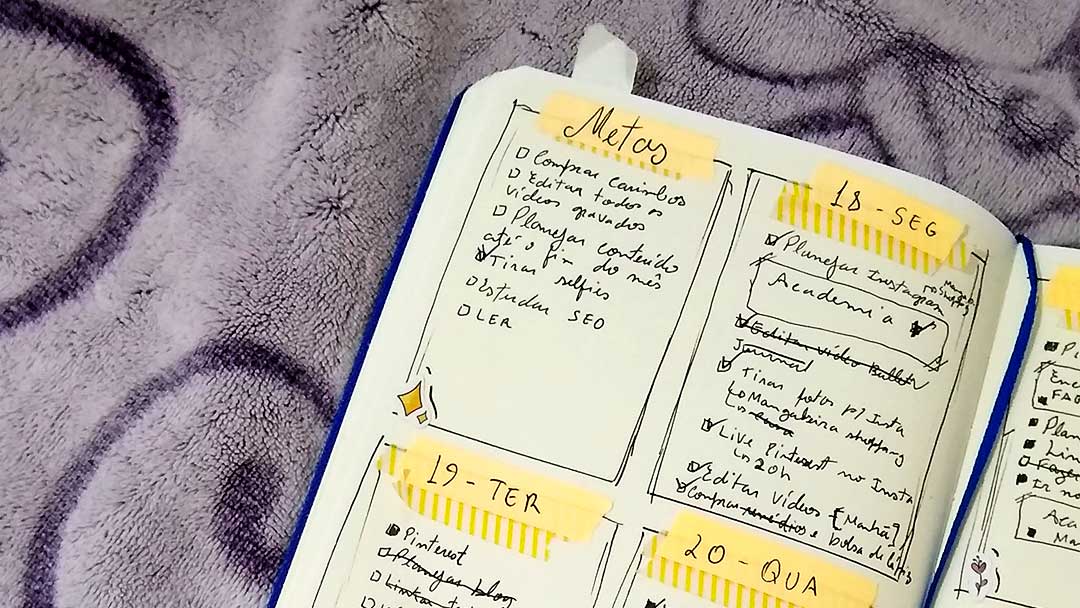 Metas
Comprar carimbos
Editar todos os
vídeos gravados
Planejar conteúdo
até o fim do mês
Tirar selfies
Estudar SEO
LER
18 - SEG
Planejar Instagram
Academia
Editar vídeo Bullet
Journal
Tirar fotos p/ Insta
Mangabeira shopping
Live Pinterest no Insta
20h
Editar vídeos [Manhã]
Comprar remédios e bolsa de
19 - TER
Pinterest
Planejar blog
20 - QUA